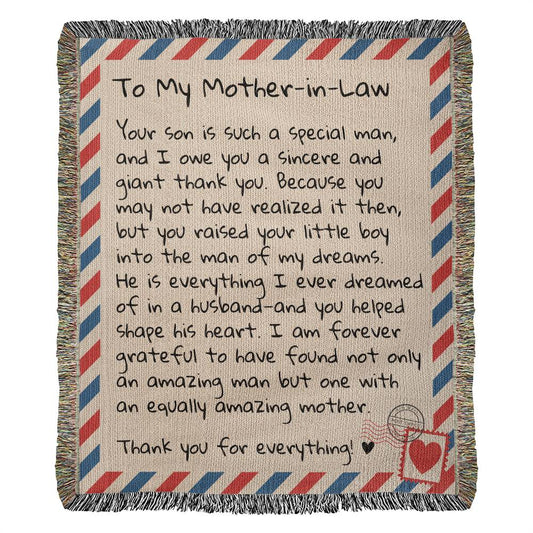 To My Mother-in-Law
Your son is such a special man,
and I owe you a sincere and
giant thank you. Because you
may not have realized it then,
but you raised your little boy
into the man of my dreams.
He is everything I ever dreamed
of in a husband-and you helped
shape his heart. I am forever
grateful to have found not only
an amazing man but one with
an equally amazing mother.
Thank you for everything! ♥